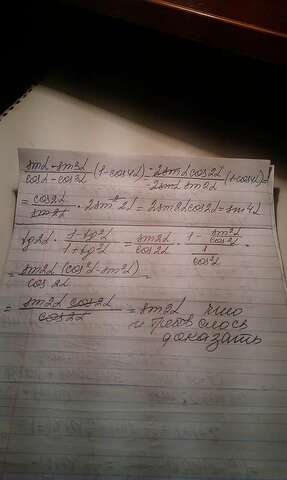 sinα - sin3α / cosα - cos3α (1 - cos4α) = -2sinα cos2α / -2sinα sin2α (1 - cos4α) =
= cos2α / sin2α · 2sin² 2α = 2sin2α cos2α = sin 4α
tg2α · 1 - tg²α / 1 + tg²α = sin2α / cos2α · 1 - sin²α / cos²α / 1 / cos²α =
= sin2α (cos²α - sin²α) / cos 2α =
= sin2α cos2α / cos2α = sin2α что
и требовалось
доказать